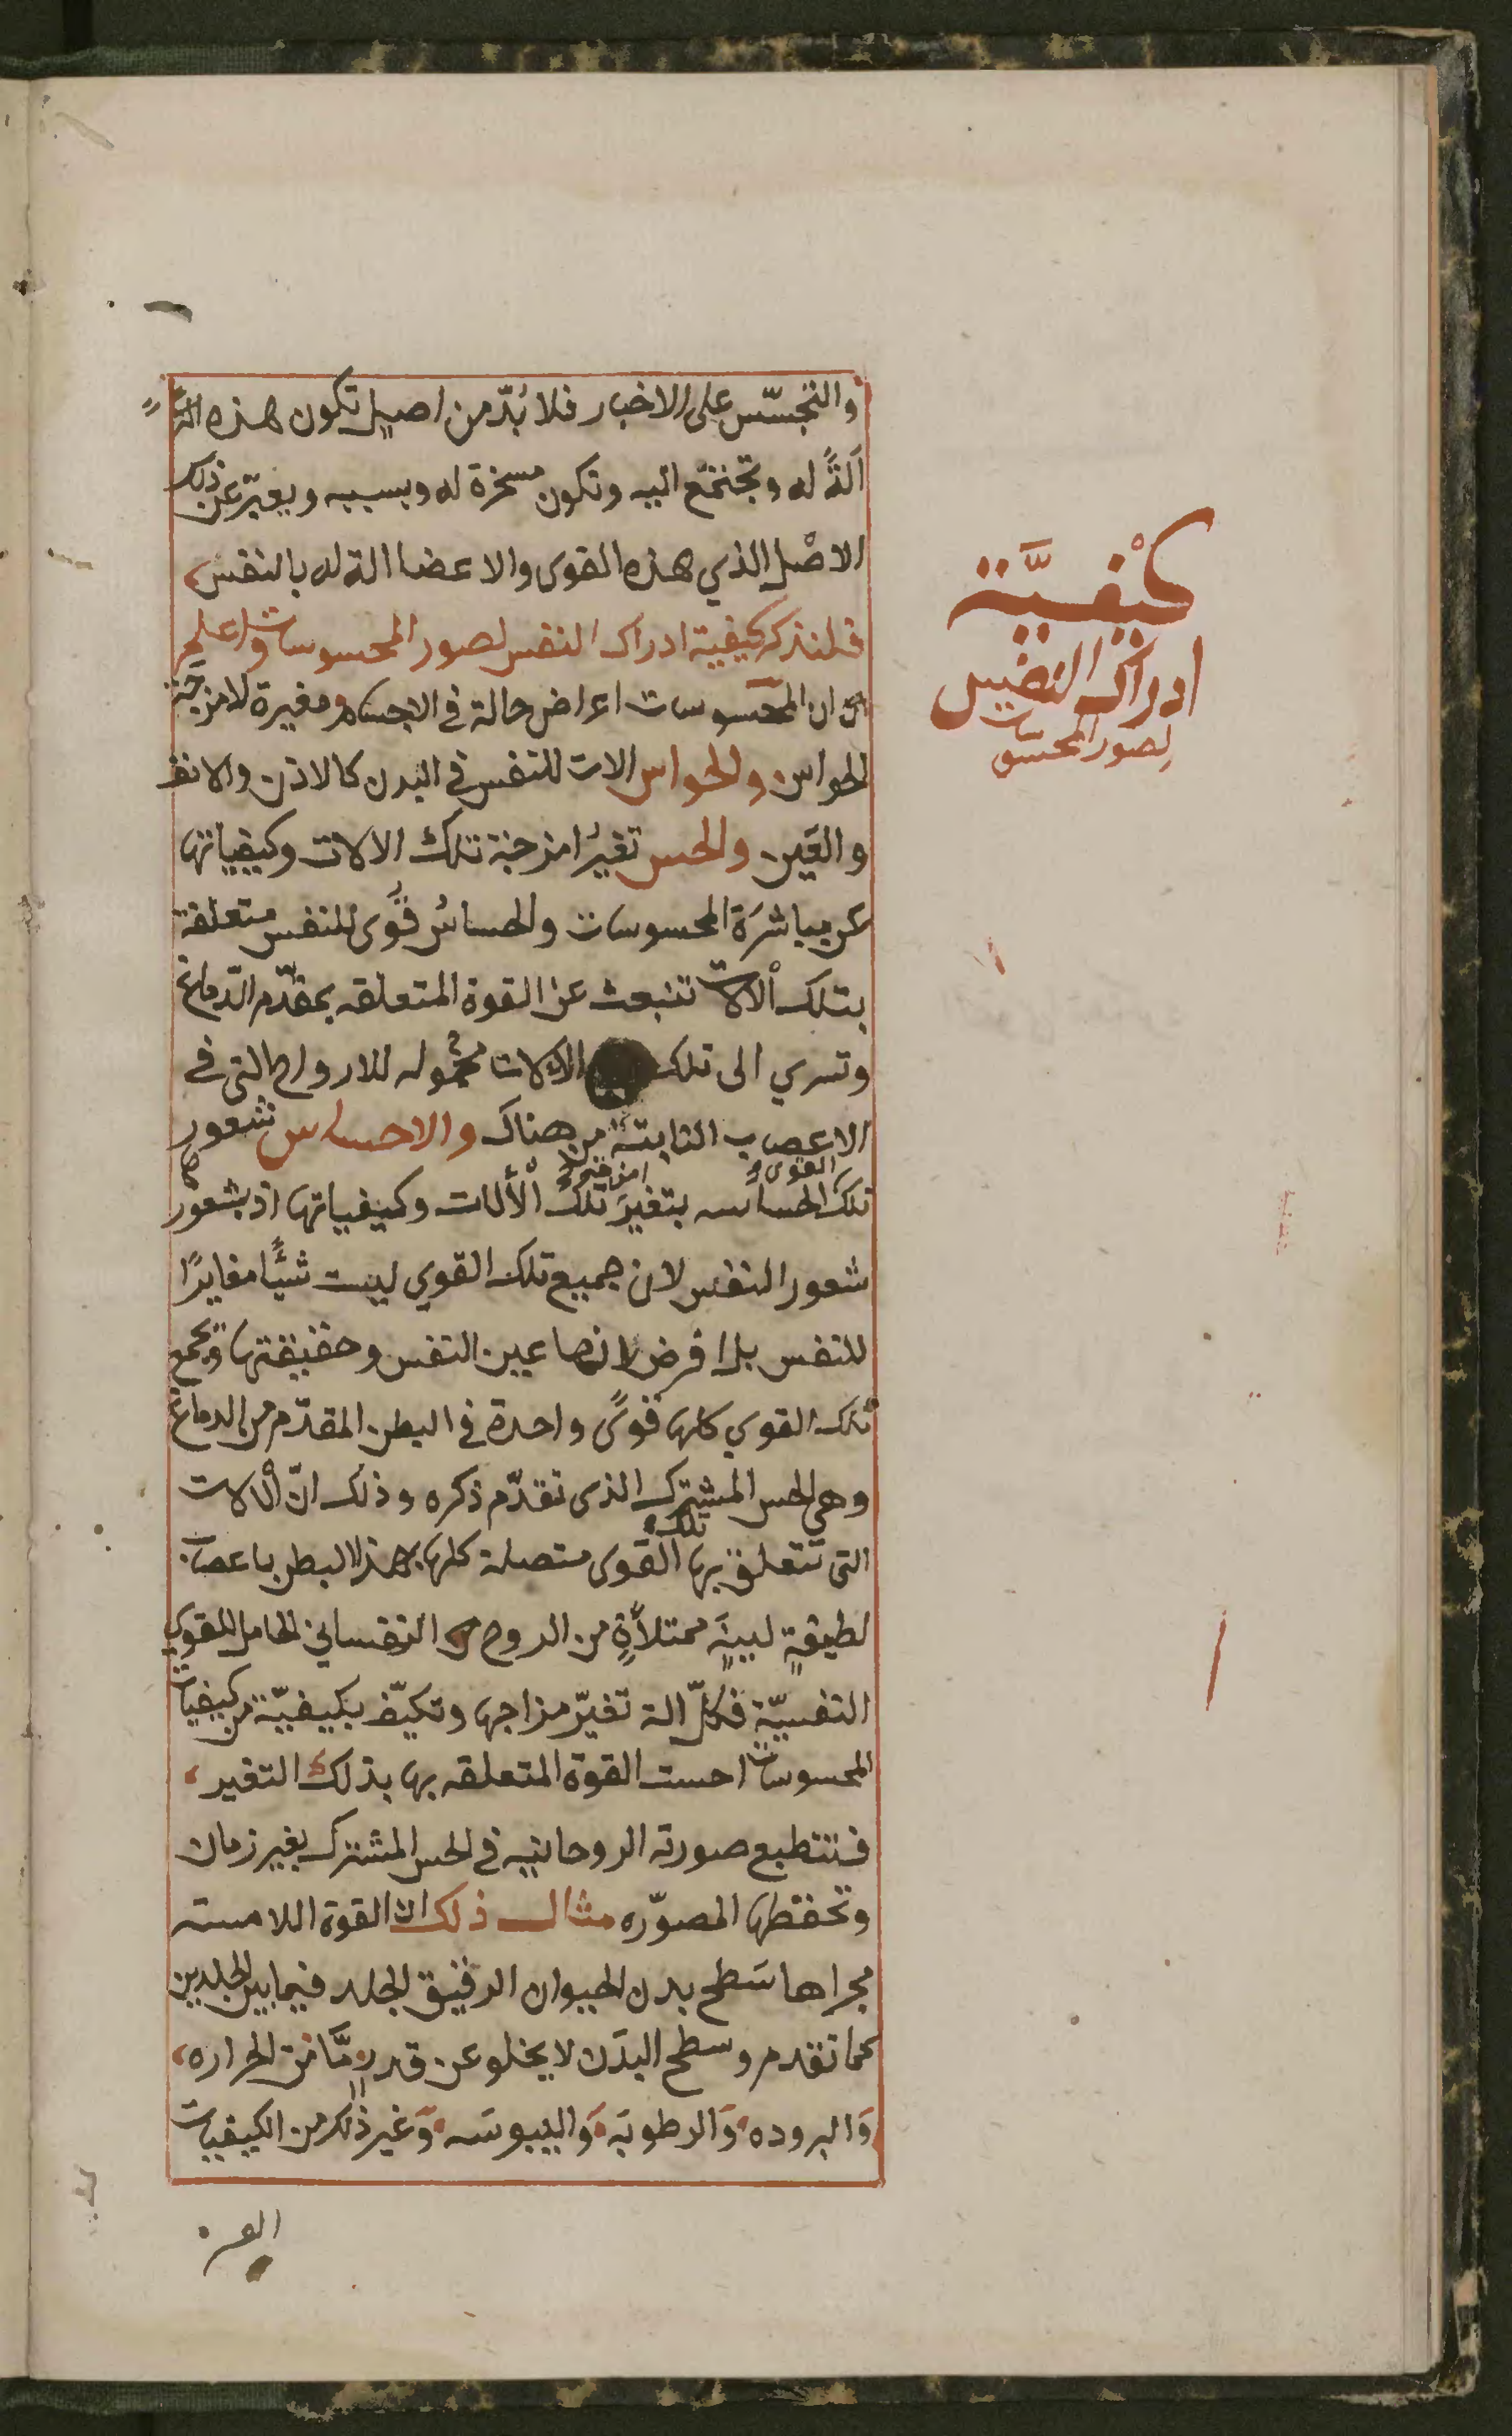 والتجسّس على الاخبار فلا بُدّ من اصيل تكون هذه
آلةً له وتجتمع اليه وتكون مسخرة له وبسببه ويعبّر عن ذلك
الاصْل الذي هذه القوى والاعضا الة له بالنفس،
فلنذكر كيفية ادراك النفس لصور المحسوسات واعلم
ان المحسوسات اعراض حالة في الاجسام ومغيرة لامزجة
الحواس والحواس الات للنفس في البدن كالاذن والانف
والعَين والحس تغيّر امزجة تلك الالات وكيفياتها
عن مباشَرة المحسوسات والحساسُ قوًى للنفس متعلقة
بتلك الآلات تنبعث عن القوة المتعلقه بمقدّم الدّماغ
وتسري الى تلك الالات محموله للارواح التي في
الاعصاب النابتة من هناك والاحساس شعور
تلك القوى الحساسه بتغيرَ امزجة تلك الألات وكيفياتها اذ بشعورها
شعور النفس لان جميع تلك القوي ليست شيًّا مغايرًا
للنفس بل افرض لانها عين النفس وحقيقتها وتجمع
تلك القوي كلها قوًى واحدة في البطن المقدّم من الدماغ
وهي الحس المشترك الذي تقدّم ذكره وذلك انّ الآلات
التي تتعلق بها تلك القوى متصلة كلها بهذا البطن باعصاب
لطيفةٍ لينةٍ ممتلأةٍ من الروح النفساني الحامل للقوي
النفسيّة فكلّ الة تغيّر مزاجها وتكيّف بكيفيّة من كيفيات
المحسوسات احست القوة المتعلقه بها بذلك التغير،
فتنطبع صورته الروحانيه في الحس المشترك بغير زمان
وتحفظها المصوّره مثال ذلك ان القوة اللامسه
مجراها سَطح بدن الحيوان الرقيق الجلد فيما بين الجلدين
كما تقدم وسطح البدَن لا يخلو عن قدرٍ مَّا من الحراره،
وَالبروده وَالرطوبَة وَاليبوسَه وَغير ذلك من الكيفيات
كيْفيَّة
ادراك النفس
لصور المحسوسات